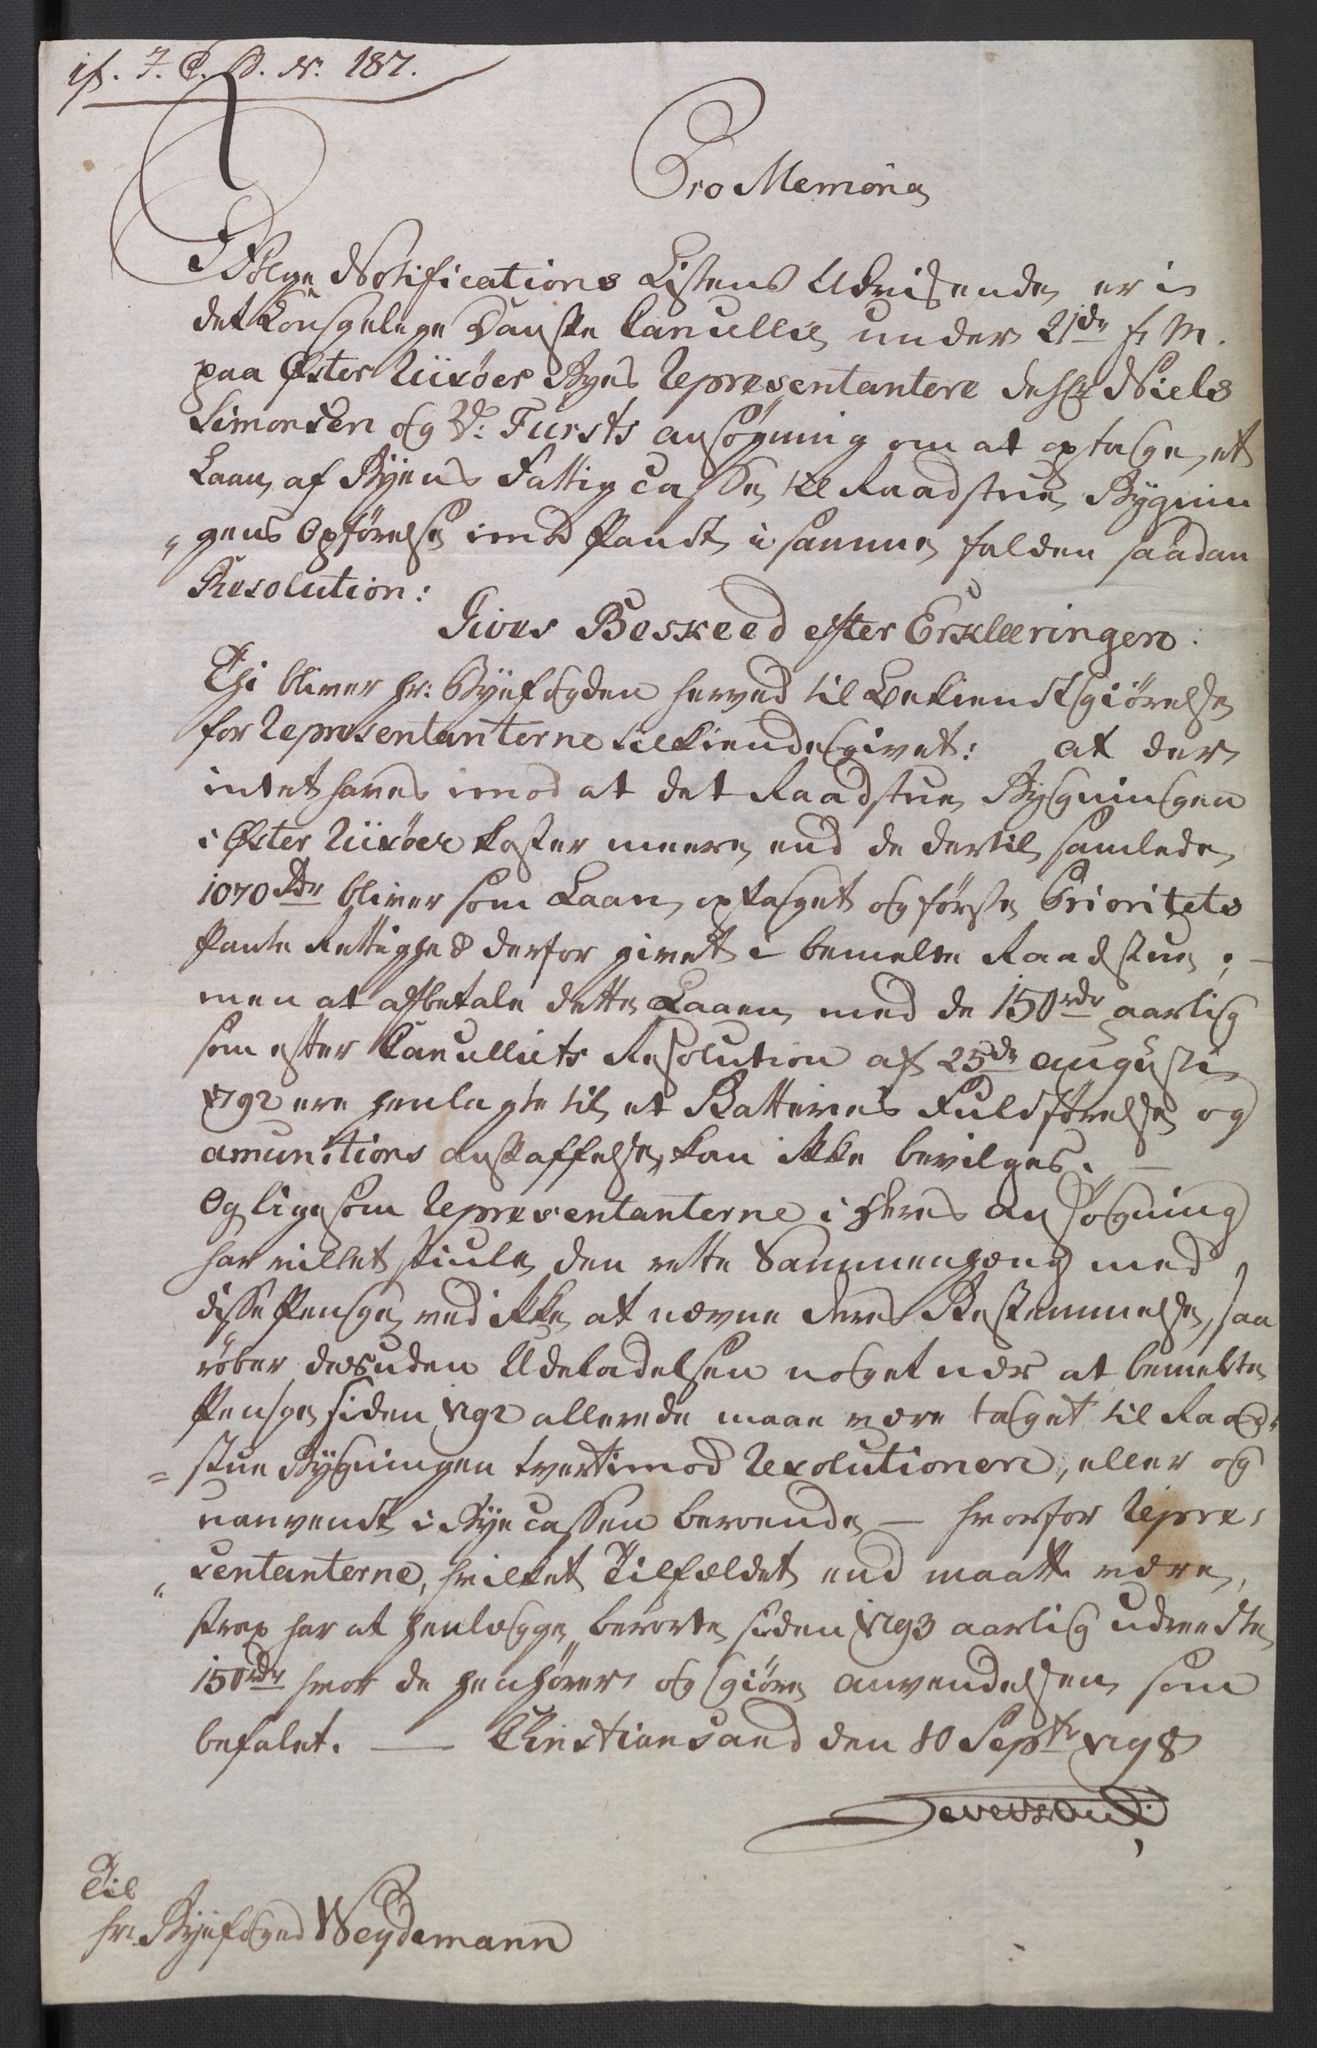 jf. J. C. B. No. 187.
Pro Memoria
Ifølge Notifications Listens Udvisende er i
det Kongelige Danske Cancellie under 21de f. M.
paa Øster Riisøer Byes Representantere Dhrr Niels
Simonsen og Fursts ansøgning om at optage et
Laan af Byens Fattig casse til Raadstue Bygnin
„gens Opførelse imod Pandt i samme falden saadan
Resolution:
Gives Beskeed efter Erklæringen.
Thi bliver hr: Byefogden herved til Bekiendtgiørelse
for Representanterne tilkiendegivet: at der
intet haves imod at det Raadstue Bygningen
i Øster Riisøer koster meere end de dertil samlede
1070 rdr bliver som Laan optaget og første Prioritets
Pante Rettighed derfor givet i bemelte Raadstue; —
men at afbetale dette Laaen med de 150 rdr aarlig
som efter Cancelliets Resolution af 25de augusti
1792 ere henlagte til et Batteries Fuldførelse og
amunitions anskaffelse, kan ikke bevilges. —
Og ligesom Representanterne i deres ansøgning
har villet skiule den rette Sammenhæng med
disse Penge ved ikke at nævne deres Bestemmelse, saa
røber desuden Udeladelsen noget nær at bemelte
Penge siden 1792 allerede maae være taget til Raad
= stue Bygningen tvertimod Resolutionen, eller og
uanvendt i Bye Cassen beroende — hvorfor Repre„
„sentanterne, hvilket Tilfældet end maatte være,
strax har at henlægge berørte siden 1793 aarlig udreedte
150 rdr hvor de henhører og giøre anvendelsen som
befalet. — Christiansand den 10 Septbr 1798
Til
hr. Byefoged Weydemann